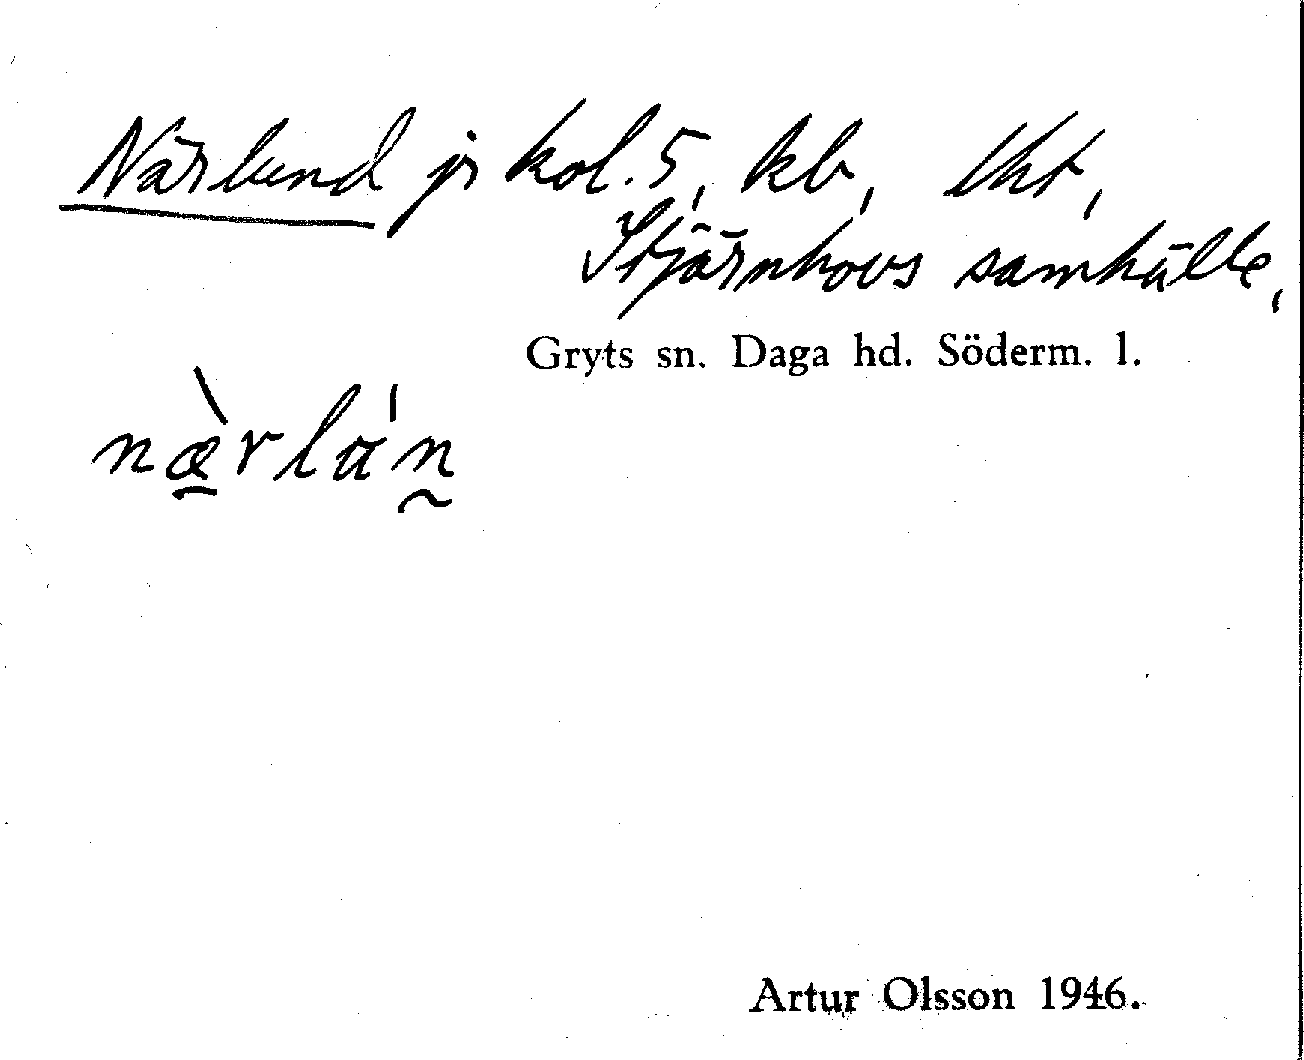 Närlund jr kol. 5, kb, lht,
Stjärnhovs samhälle,
Gryts sn. Daga hd. Söderm. l.
næ̠̀rlɑ́n̰
Artur Olsson 1946.